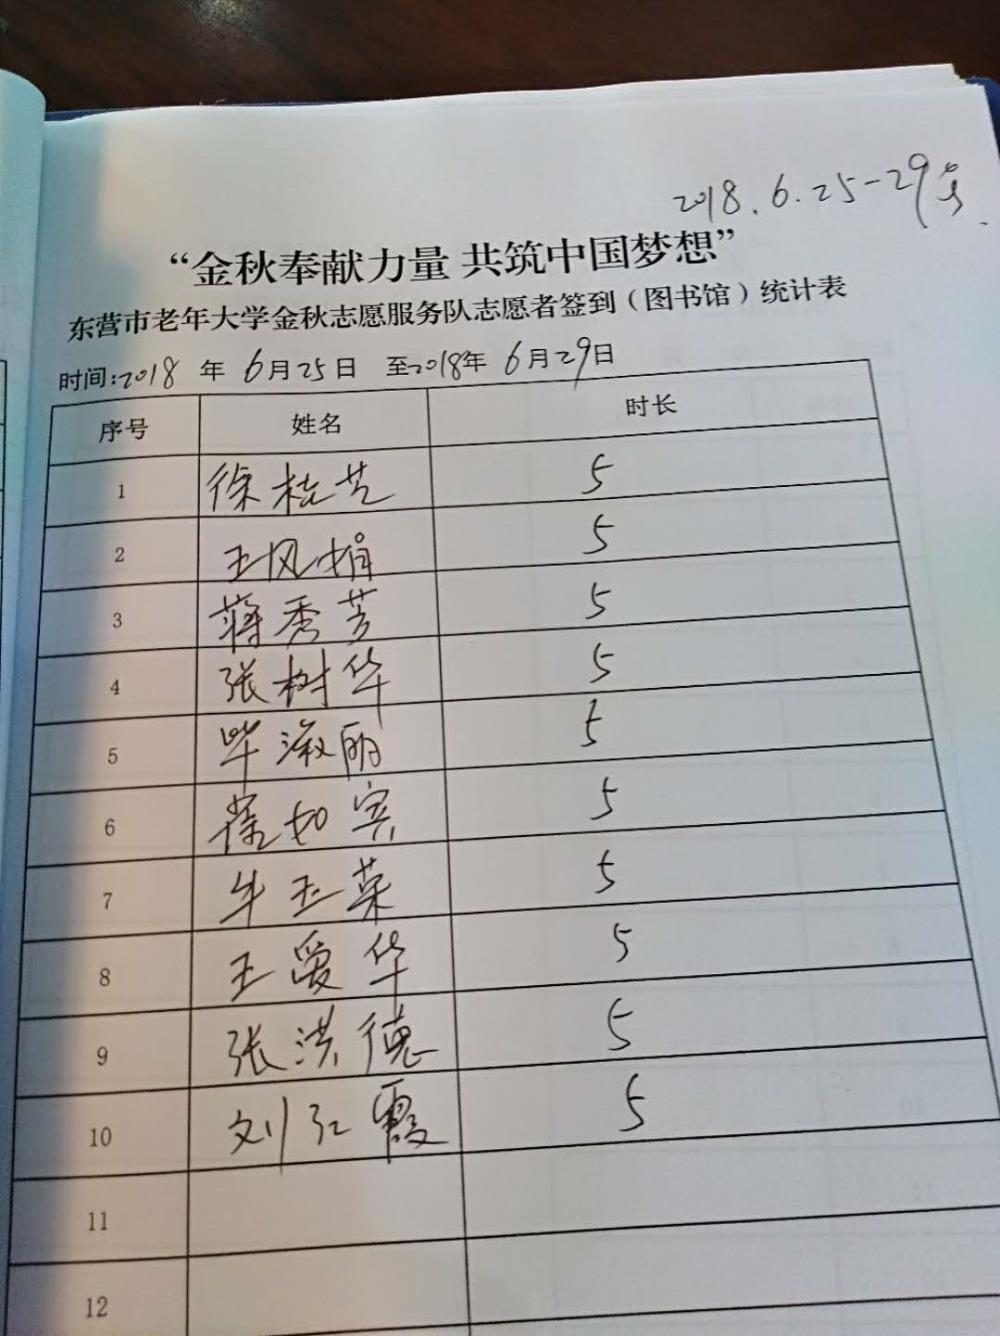 2018.6.25-29号
“金秋奉献力量 共筑中国梦想”
东营市老年大学金秋志愿服务队志愿者签到（图书馆）统计表
时间:2018 年 6月25日 至2018年 6月29日
序号 姓名 时长
1 徐桂芝 5
2 王风娟 5
3 蒋秀芳 5
4 张树华 5
5 毕淑丽 5
6 如宾 5
7 牟玉菜 5
8 王爱华 5
9 张洪德 5
10 刘红霞 5
11
12